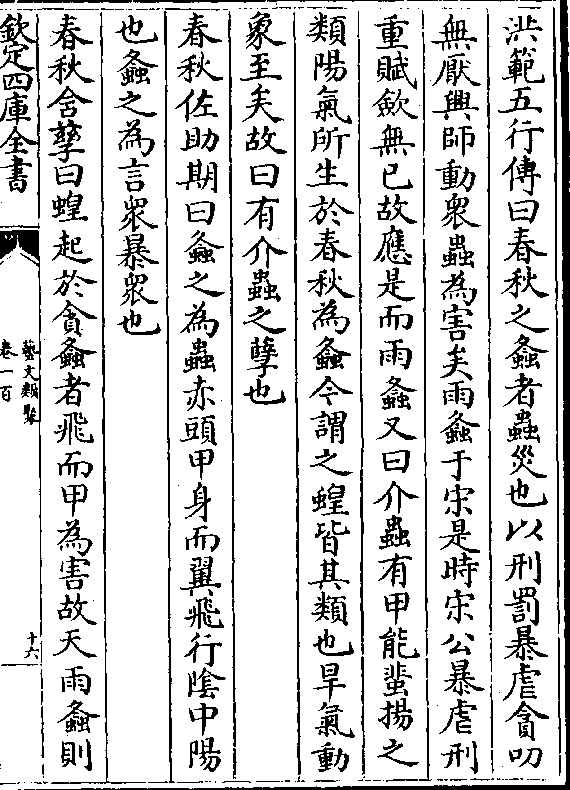 洪範五行傳曰春秋之螽者蟲災也以刑罰暴虐貪叨
無厭興師動衆蟲為害矣雨螽于宋是時宋公暴虐刑
重賦斂無已故應是而雨螽又曰介蟲有甲能蜚揚之
類陽氣所生於春秋為螽今謂之蝗皆其類也旱氣動
象至矣故曰有介蟲之孽也
春秋佐助期曰螽之為蟲赤頭甲身而翼飛行陰中陽
也螽之為言衆暴衆也
春秋含孳曰蝗起於貪螽者飛而甲為害故天雨螽則
欽定四庫全書
藝文類聚
卷一百
十六